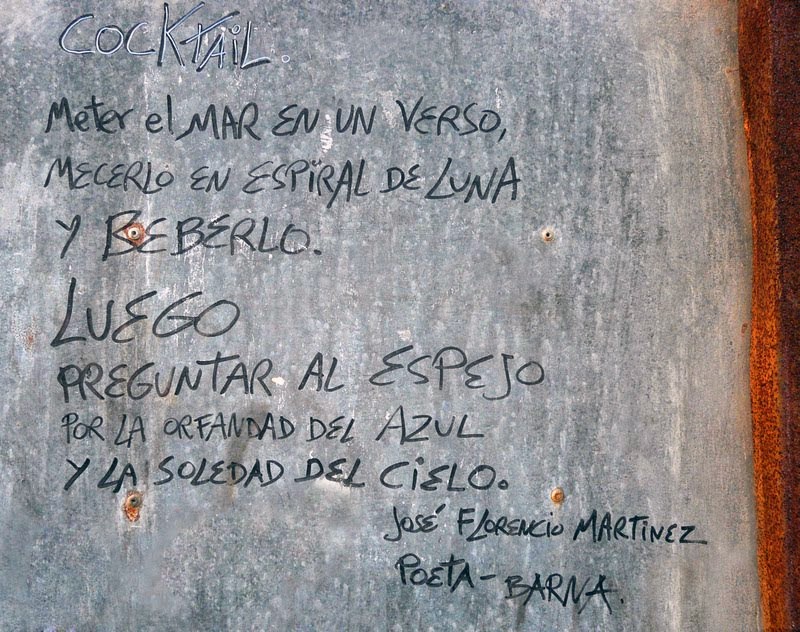 COCKTAIL.
Meter el MAR EN UN VERSO,
MECERLO EN ESPIRAL DE LUNA
Y BEBERLO.
LUEGO
PREGUNTAR AL ESPEJO
POR LA ORFANDAD DEL AZUL
Y LA SOLEDAD DEL CIELO.
JOSÉ FLORENCIO MARTINEZ
POETA - BARNA.